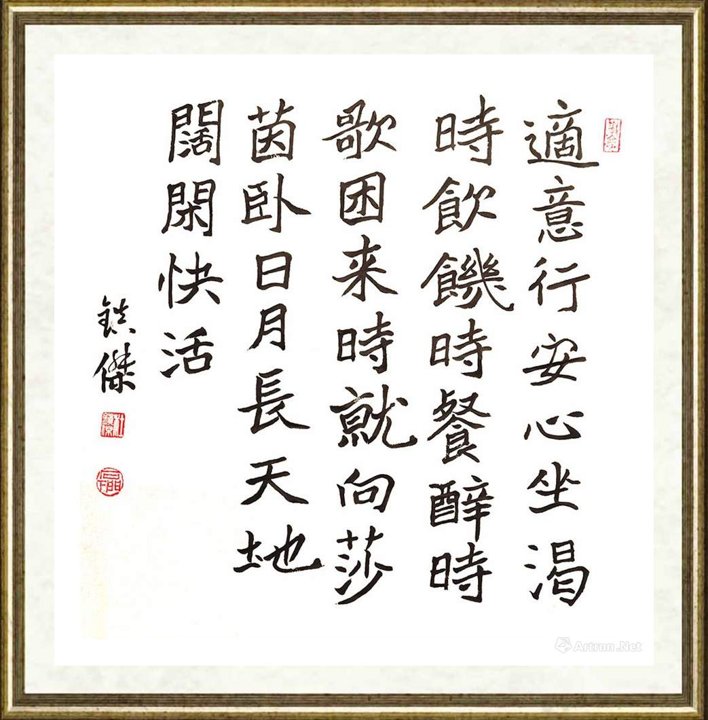 適意行安心坐渴
時飲饑時餐醉時
歌困来時就向莎
茵卧日月長天地
闊閑快活
鎮傑
Artron.Net